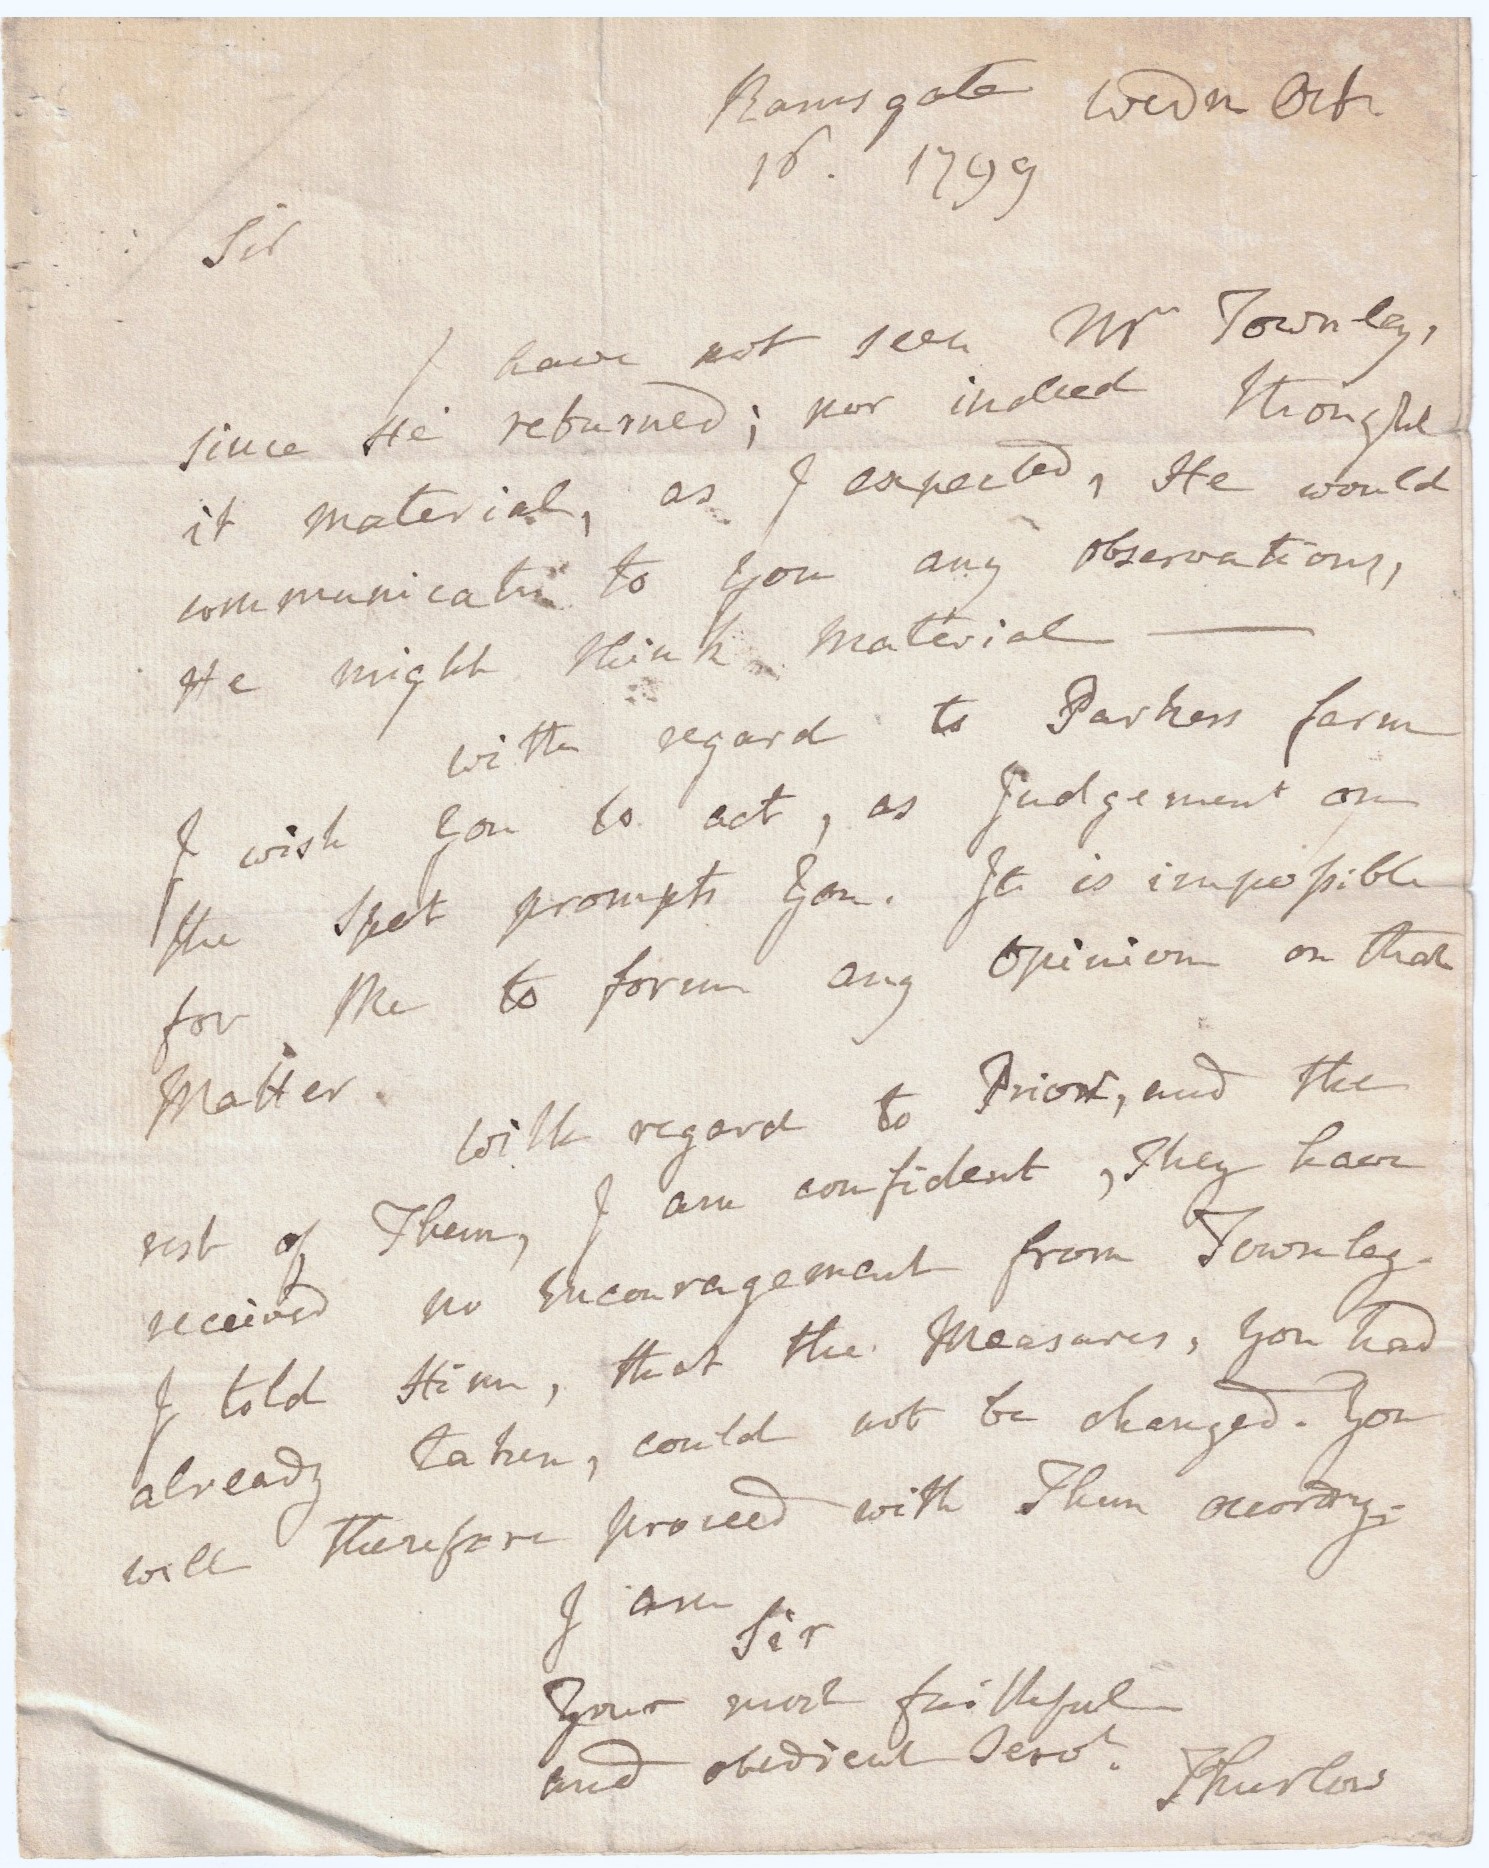 Ramsgate Wedn Octr
16. 1799
Sir
I have not seen Mr Townley,
since He returned; nor indeed thought
it material, as I expected, He would
communicate to You any observations,
He might think Material —
With regard to Parkers farm
I wish You to act, as Judgement on
the Spot prompts You. It is impossible
for Me to form any Opinion on that
Matter.
With regard to Prior, and the
rest of Them, I am confident, They have
received no Encouragement from Townley.
I told Him, that the Measures, You had
already taken, could not be changed. You
will therefore proceed with Them
I am
Sir
Your most faithful
and obedient Servt.
Thurlow